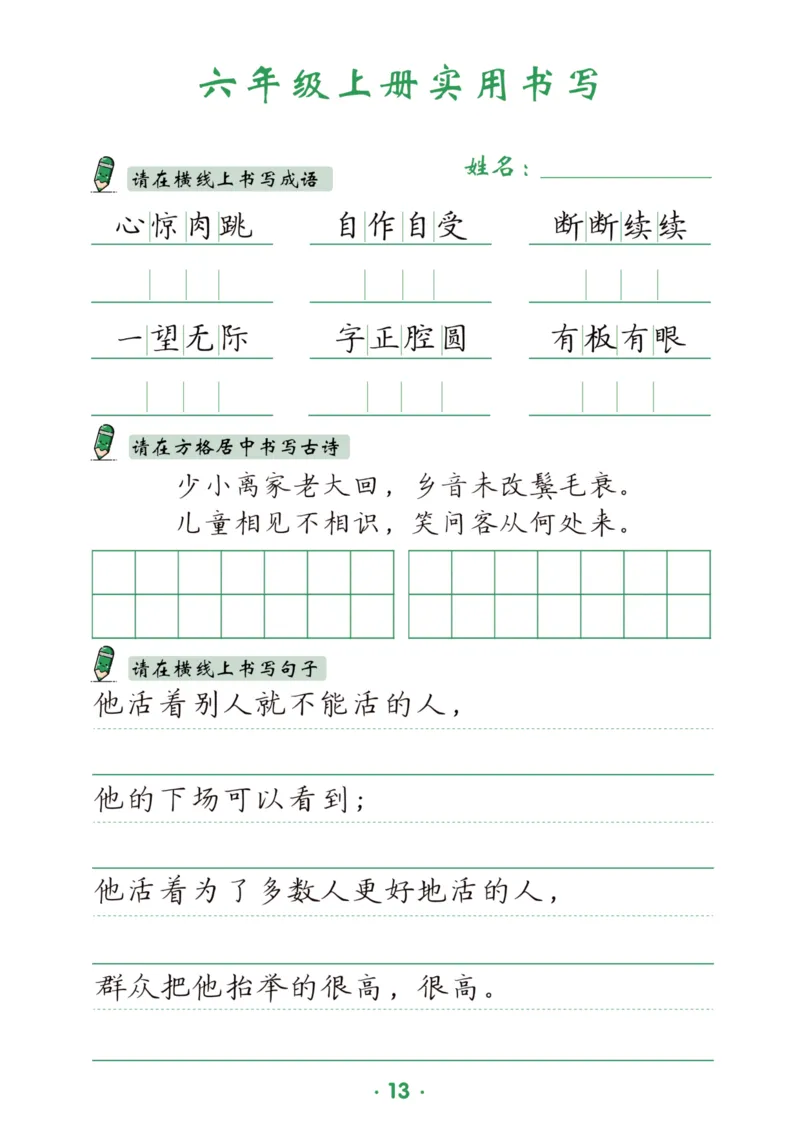 六年级上册实用书写
姓名：
请在横线上书写成语
心惊肉跳 自作自受 断断续续
一望无际 字正腔圆 有板有眼
请在方格居中书写古诗
少小离家老大回，乡音未改鬓毛衰。
儿童相见不相识，笑问客从何处来。
请在横线上书写句子
他活着别人就不能活的人，
他的下场可以看到；
他活着为了多数人更好地活的人，
群众把他抬举的很高，很高。
· 13 ·